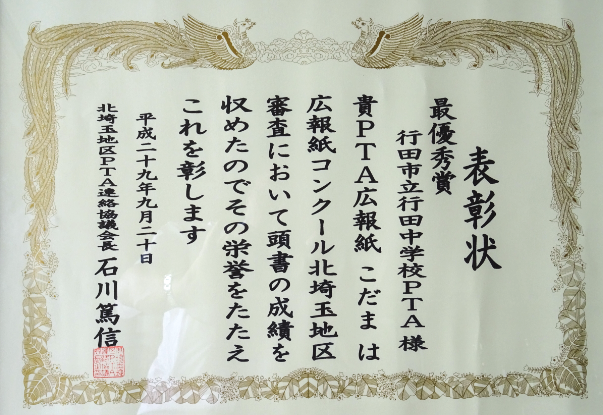 表彰状
最優秀賞
行田市立行田中学校PTA様
貴PTA広報紙 こだま は
広報紙コンクール北埼玉地区
審査において頭書の成績を
収めたのでその栄誉をたたえ
これを彰します
平成二十九年九月二十日
北埼玉地区PTA連絡協議会長 石川篤信